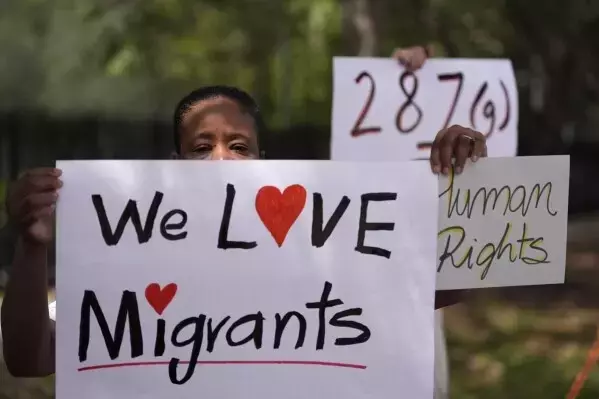 We L❤VE
Migrants
287(g)
Human
Rights